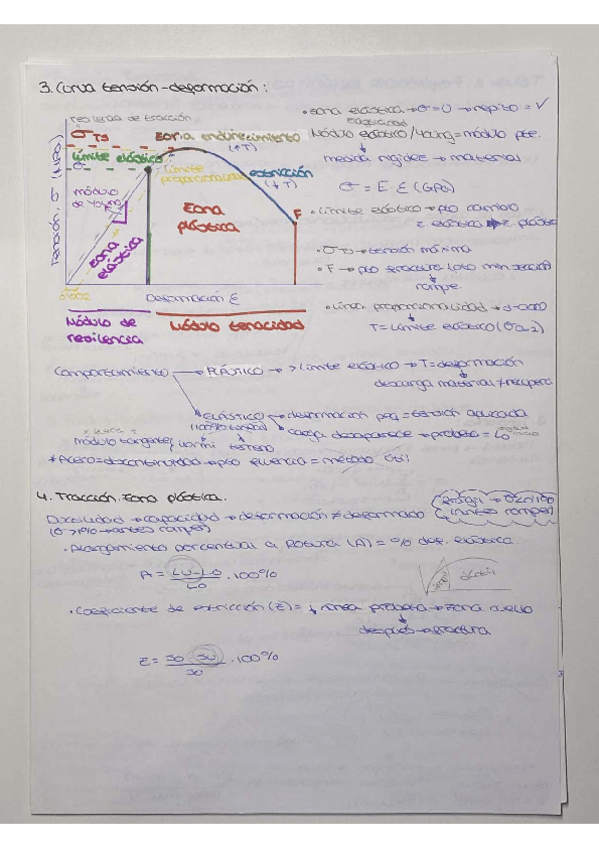 3. Curva tensión-deformación:
resiliencia de tracción
σTS
Zona endurecimiento
(↑T)
Límite elástico
Límite
proporcionalidad
estricción
(↓T)
Tensión, σ (MPa)
módulo
de Young
zona
elástica
Zona
plástica
F
0'002
Deformación ε
Módulo de
resiliencia
Módulo tenacidad
• zona elástica → σ=0 →
elasticidad
Módulo elástico/Young = módulo pte.
medida rigidez → material
σ = E · ε (GPa)
• Límite elástico → pto cambio
z elástica → z plástica
• σTS → tensión máxima
• F → pto fractura
rompe
• Línea proporcionalidad →
T = Límite elástico (σ0.2)
Comportamiento → PLÁSTICO → > Límite elástico → T = deformación
descarga material ≠ recupera
ELÁSTICO → deformación peq. = tensión aplicada
carga desaparece → probeta = L0
módulo tangente,
* Acero = discontinuidad → pto fluencia = método útil
4. Tracción. Zona plástica.
Ductilidad → capacidad → deformación ≠ deformado
(antes romper)
• Alargamiento porcentual a Rotura (A) = % def. elástica.
A = LU-L0 / L0 · 100%
• Coeficiente de estricción (Z) = ↓ área probeta → zona cuello
después → fractura
Z = S0 - SU / S0 · 100%